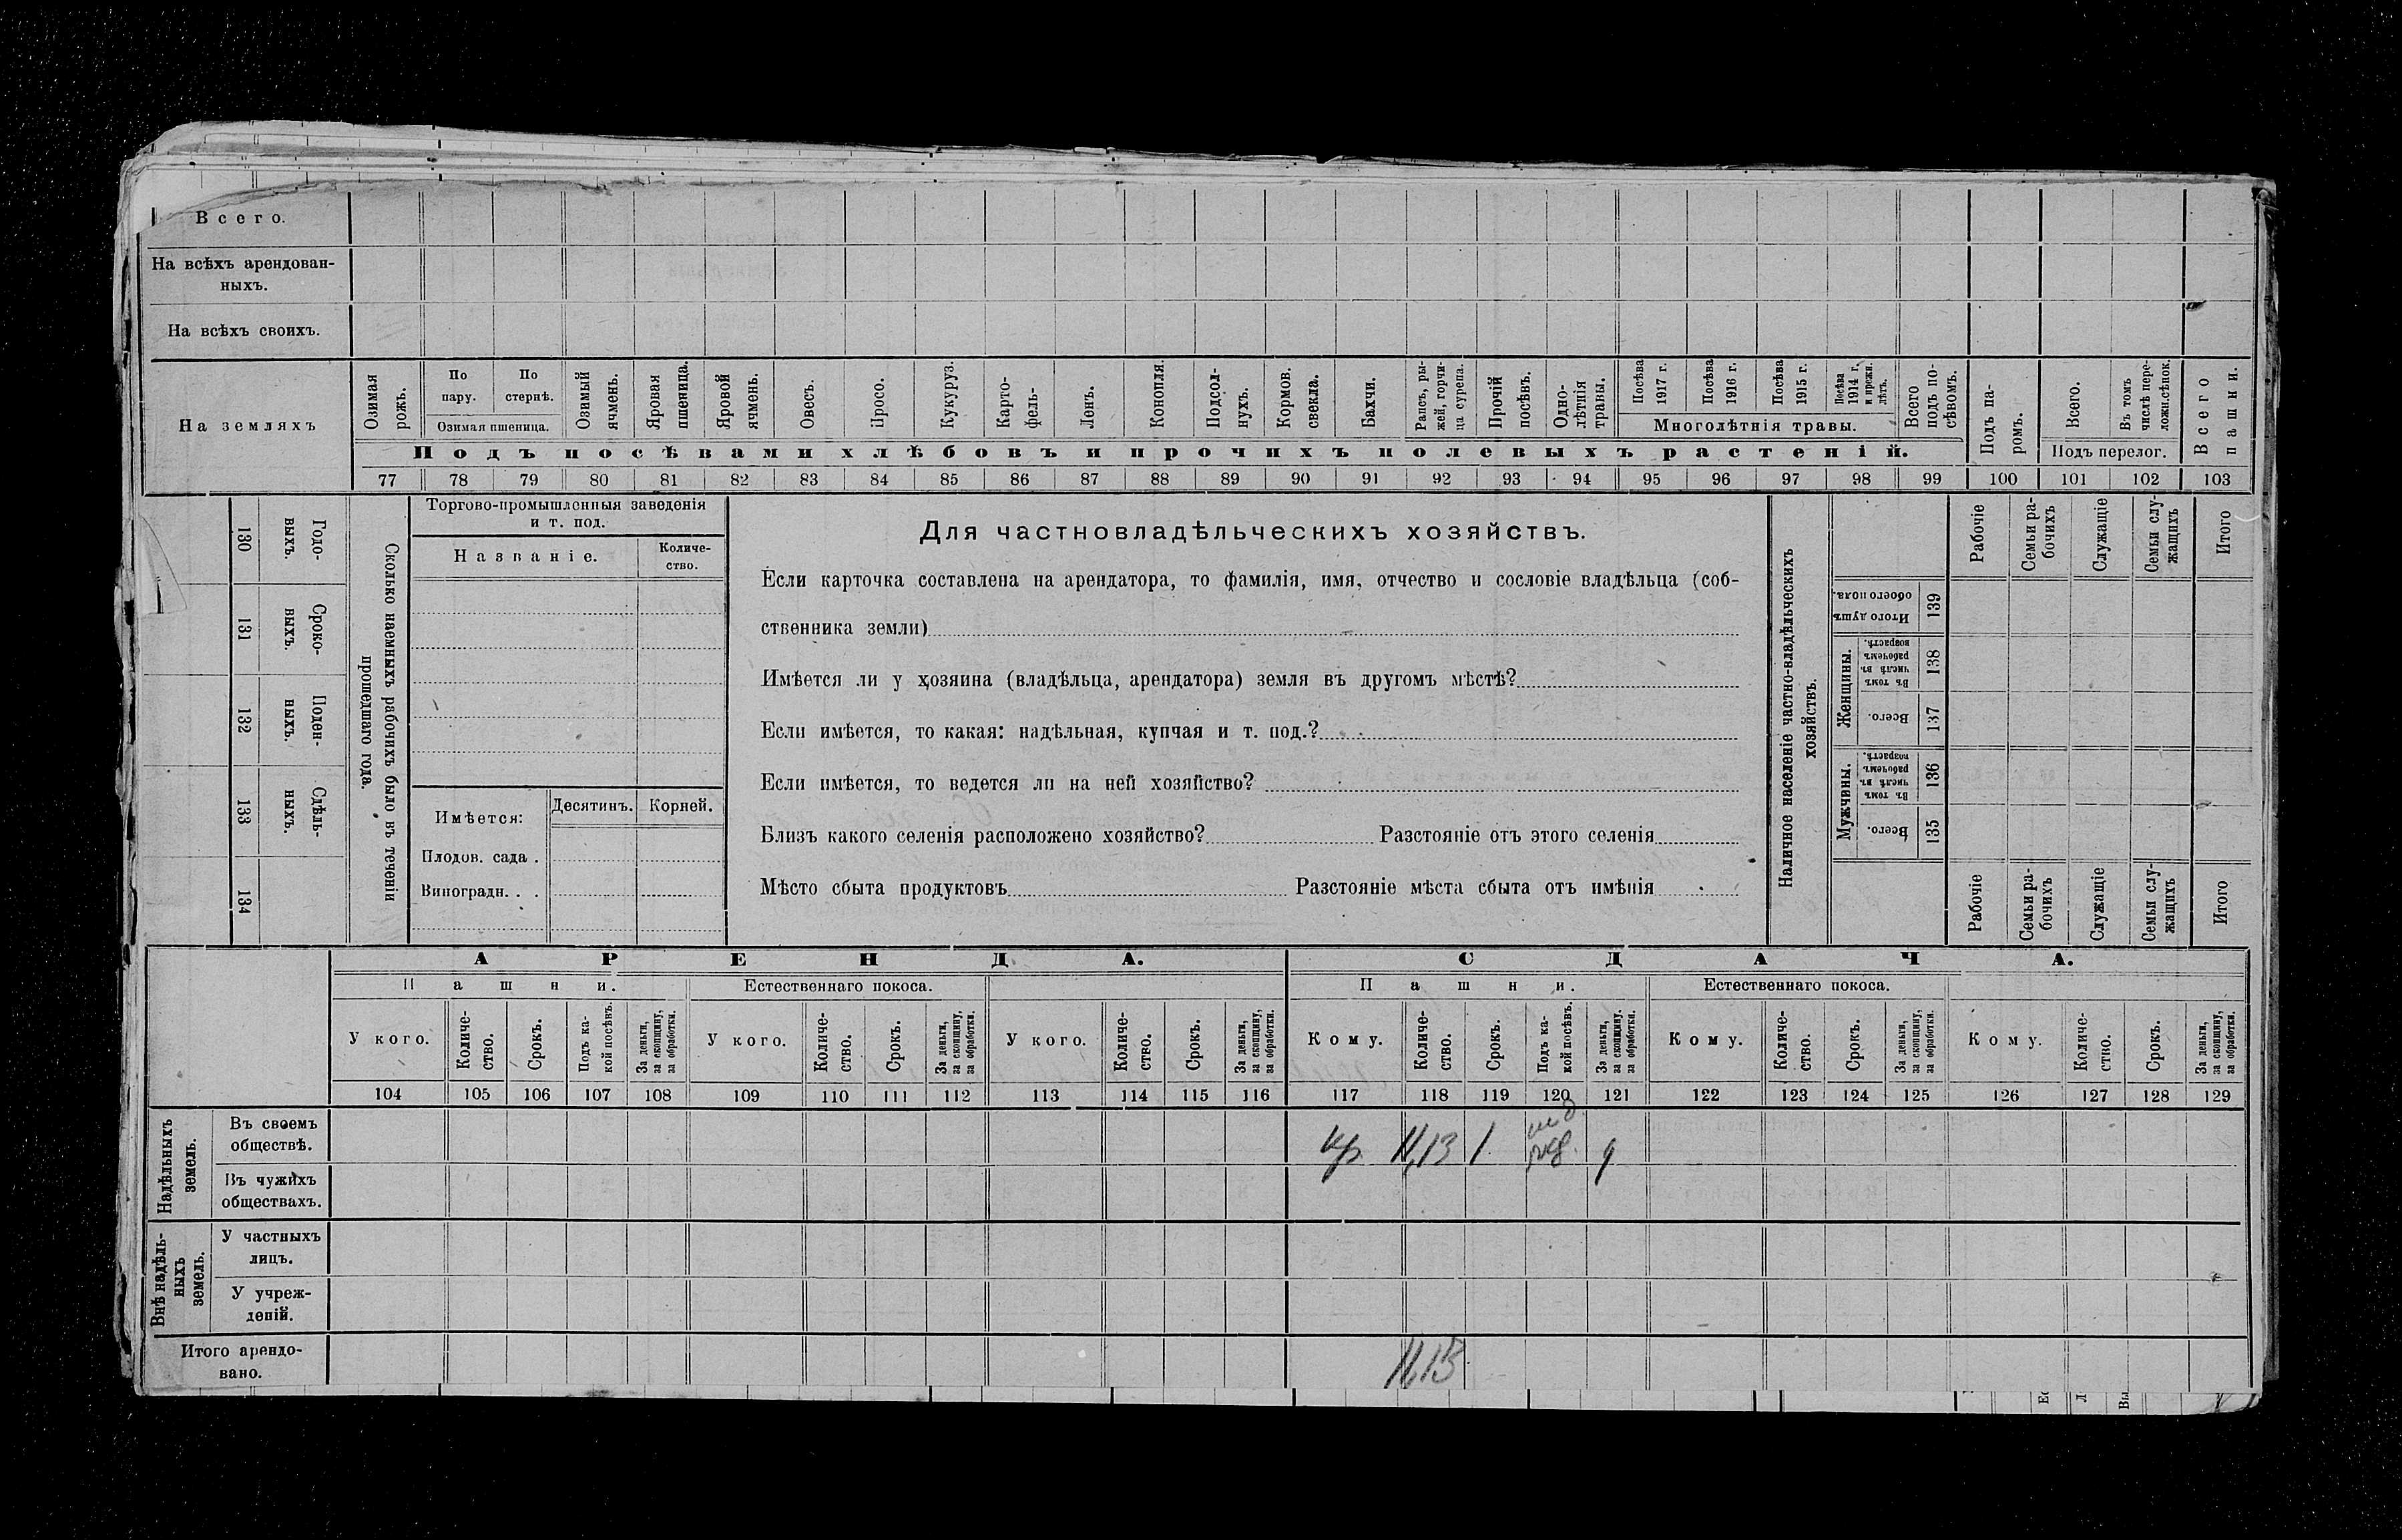 Всего.
На всѣхъ арендован-
ныхъ.
На всѣхъ своихъ.
На земляхъ
Озимая
рожь.
По
пару.
По
стернѣ.
Озимая пшеница.
Озимый
ячмень.
Яровая
пшеница.
Яровой
ячмень.
Овесъ.
Просо.
Кукуруз.
Карто-
фель-
Ленъ.
Конопля.
Подсол-
нухъ.
Кормов.
свекла.
Бахчи.
Рапсъ, ры-
жей, горчи-
ца сурепа.
Прочій
посѣвъ.
Одно-
лѣтнія
травы.
Посѣва
1917 г.
Посѣва
1916 г.
Посѣва
1915 г.
Посѣва
1914 г.
и прежн.
лѣтъ.
Многолѣтнія травы.
Всего
подъ по-
сѣвомъ.
Подъ па-
ромъ.
Всего.
Въ томъ
числѣ пере-
ложн.сѣнок.
Подъ перелог.
Всего
пашни.
Подъ посѣвами хлѣбовъ и прочихъ полевыхъ растеній.
77 78 79 80 81 82 83 84 85 86 87 88 89 90 91 92 93 94 95 96 97 98 99 100 101 102 103
130
Годо-
выхъ.
131
Сроко-
выхъ.
132
Поден-
ныхъ.
133
Сдѣль-
ныхъ.
134
Сколько наемныхъ рабочихъ было въ теченіи
прошедшаго года.
Торгово-промышленныя заведенія
и т. под.
Названіе.
Количе-
ство.
Имѣется:
Десятинъ.
Корней.
Плодов. сада .
Виноградн. . .
Для частновладѣльческихъ хозяйствъ.
Если карточка составлена на арендатора, то фамилія, имя, отчество и сословіе владѣльца (соб-
ственника земли)
Имѣется ли у хозяина (владѣльца, арендатора) земля въ другомъ мѣстѣ?
Если имѣется, то какая: надѣльная, купчая и т. под.?
Если имѣется, то ведется ли на ней хозяйство?
Близъ какого селенія расположено хозяйство? Разстояніе отъ этого селенія
Мѣсто сбыта продуктовъ Разстояніе мѣста сбыта отъ имѣнія
Наличное населеніе частно-владѣльческихъ
хозяйствъ.
Рабочіе
Семьи ра-
бочихъ
Служащіе
Семьи слу-
жащихъ
Итого
Итого душъ
обоего пола.
139
Женщины.
Въ томъ
числѣ въ
рабочемъ
возрастѣ.
138
Всего.
137
Мужчины.
Въ томъ
числѣ въ
рабочемъ
возрастѣ.
136
Всего.
135
Рабочіе
Семьи ра-
бочихъ
Служащіе
Семьи слу-
жащихъ
Итого
АРЕНДА.
СДАЧА.
Пашни.
Естественнаго покоса.
Пашни.
Естественнаго покоса.
У кого.
Количе-
ство.
Срокъ.
Подъ ка-
кой посѣвъ.
За деньги,
за скопщину,
за обработки.
У кого.
Количе-
ство.
Срокъ.
За деньги,
за скопщину,
за обработки.
У кого.
Количе-
ство.
Срокъ.
За деньги,
за скопщину,
за обработки.
Кому.
Количе-
ство.
Срокъ.
Подъ ка-
кой посѣвъ.
За деньги,
за скопщину.
за обработки.
Кому.
Количе-
ство.
Срокъ.
За деньги,
за скопщину,
за обработки.
Кому.
Количе-
ство.
Срокъ.
За деньги,
за скопщину,
за обработки.
104 105 106 107 108 109 110 111 112 113 114 115 116 117 118 119 120 121 122 123 124 125 126 127 128 129
Надѣльныхъ
земель.
Въ своемъ
обществѣ.
кр. 11,13 1
Въ чужихъ
обществахъ.
Внѣ надѣль-
ныхъ
земель.
У частныхъ
лицъ.
У учреж-
деній.
Итого арендо-
вано.
11,13